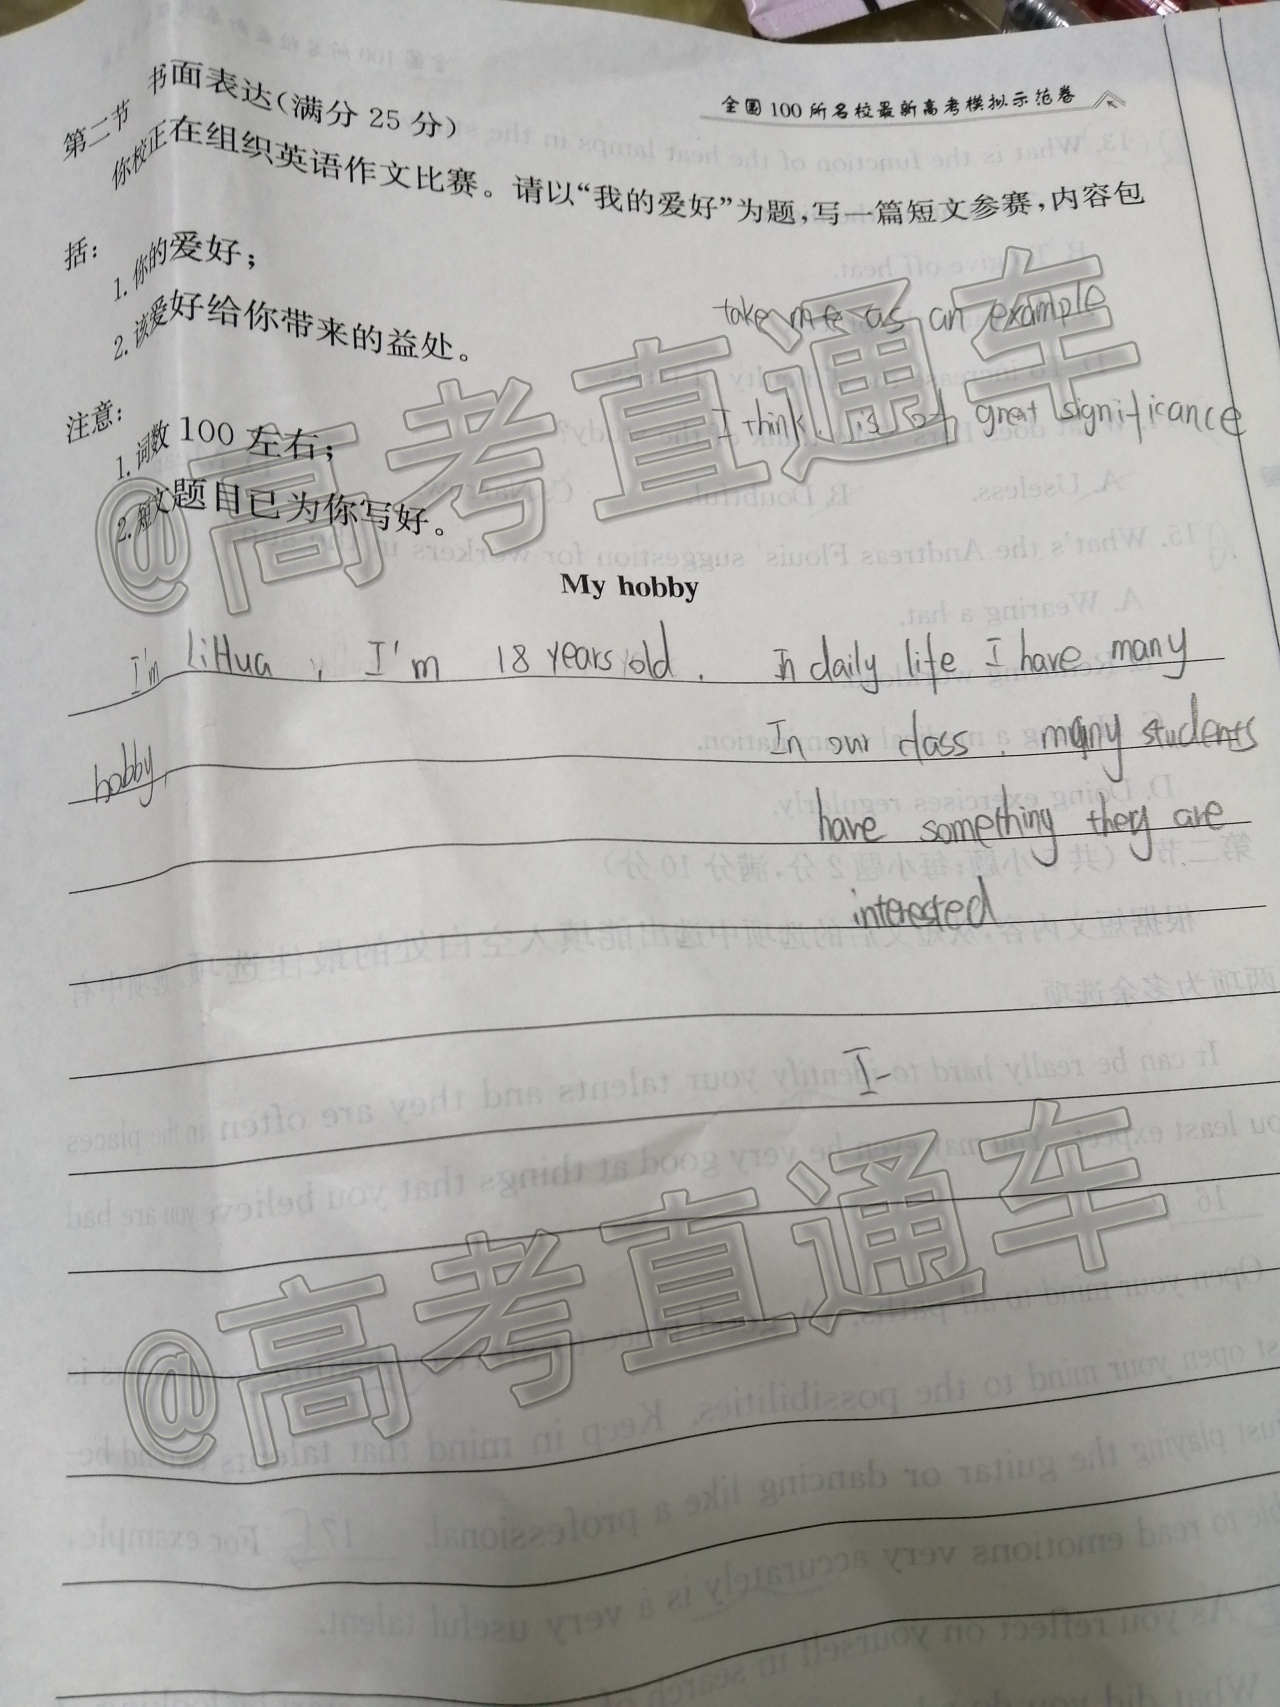 全国100所名校最新高考模拟示范卷
第二节 书面表达(满分25分)
你校正在组织英语作文比赛。请以“我的爱好”为题,写一篇短文参赛,内容包
括:
1.你的爱好;
2.该爱好给你带来的益处。
take me as an example
I think. is of great significance
注意:
1.词数100左右;
2.短文题目已为你写好。
My hobby
I'm LiHua, I'm 18 years old. In daily life I have many
hobby,
In our class, many students
have something they are
interested
I-
@高考直通车
@高考直通车